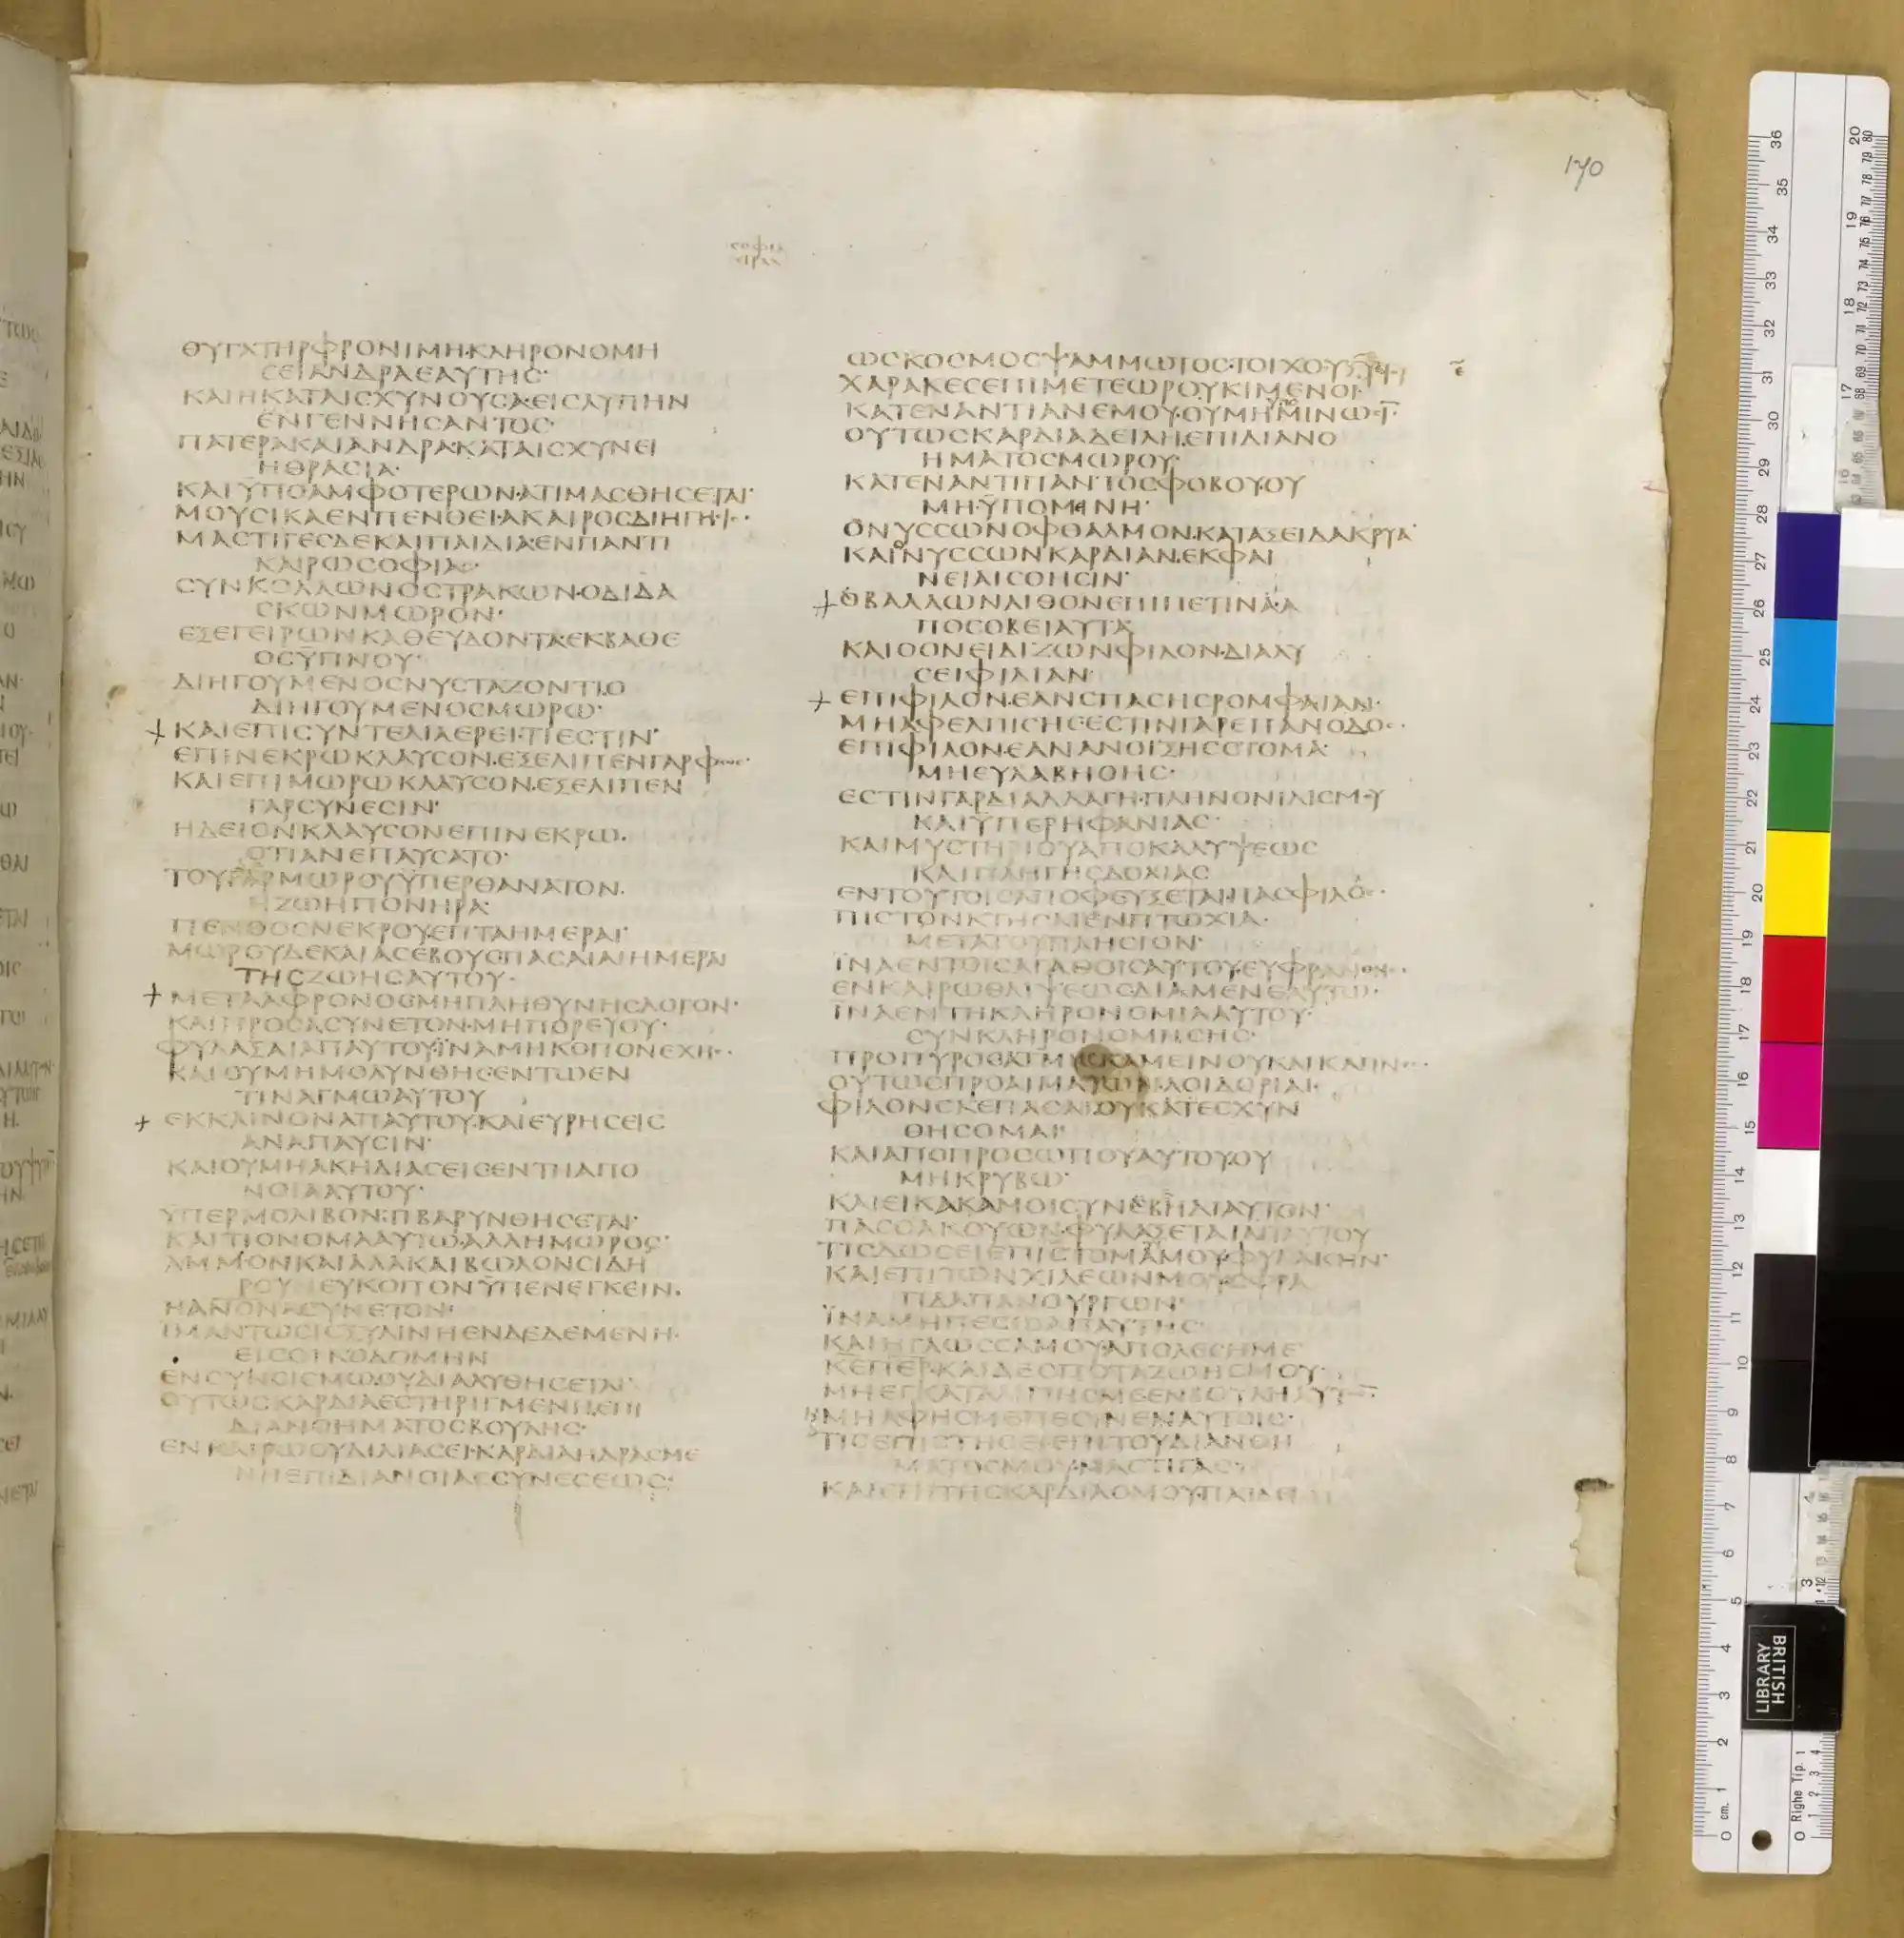 170
ΣΟΦΙΑ
ΣΙΡΑΧ
ΘΥΓΑΤΗΡΦΡΟΝΙΜΗ·ΚΛΗΡΟΝΟΜΗ
ϹΕΙΑΝΔΡΑΕΑΥΤΗϹ·
ΚΑΙΗΚΑΤΑΙϹΧΥΝΟΥϹΑ·ΕΙϹΛΥΠΗΝ
ΕΝΓΕΝΝΗϹΑΝΤΟϹ·
ΠΑΤΕΡΑΚΑΙΑΝΔΡΑ·ΚΑΤΑΙϹΧΥΝΕΙ
ΗΘΡΑϹΙΑ·
ΚΑΙΫΠΟΑΜΦΟΤΕΡΩΝ·ΑΤΙΜΑϹΘΗϹΕΤΑΙ·
ΜΟΥϹΙΚΑΕΝΠΕΝΘΕΙ·ΑΚΑΙΡΟϹΔΙΗΓΗ
ΜΑϹΤΙΓΕϹΔΕΚΑΙΠΑΙΔΙΑ·ΕΝΠΑΝΤΙ
ΚΑΙΡΩϹΟΦΙΑϹ·
ϹΥΝΚΟΛΛΩΝΟϹΤΡΑΚΟΝ·ΟΔΙΔΑ
ϹΚΩΝΜΩΡΟΝ·
ΕΞΕΓΕΙΡΩΝΚΑΘΕΥΔΟΝΤΑ·ΕΚΒΑΘΕ
ΟϹΫΠΝΟΥ·
ΔΙΗΓΟΥΜΕΝΟϹΝΥϹΤΑΖΟΝΤΙ·Ο
ΔΙΗΓΟΥΜΕΝΟϹΜΩΡΩ·
ΚΑΙΕΠΙϹΥΝΤΕΛΙΑΕΡΕΙ·ΤΙΕϹΤΙΝ·
ΕΠΙΝΕΚΡΩΚΛΑΥϹΟΝ·ΕΞΕΛΙΠΕΝΓΑΡΦΩϹ·
ΚΑΙΕΠΙΜΩΡΩΚΛΑΥϹΟΝ·ΕΞΕΛΙΠΕΝ
ΓΑΡϹΥΝΕϹΙΝ·
ΗΔΕΙΟΝΚΛΑΥϹΟΝΕΠΙΝΕΚΡΩ·
ΟΤΙΑΝΕΠΑΥϹΑΤΟ·
ΤΟΥΓΑΡΜΩΡΟΥΫΠΕΡΘΑΝΑΤΟΝ·
ΗΖΩΗΠΟΝΗΡΑ·
ΠΕΝΘΟϹΝΕΚΡΟΥ·ΕΠΤΑΗΜΕΡΑΙ·
ΜΩΡΟΥΔΕΚΑΙΑϹΕΒΟΥϹ·ΠΑϹΑΙΑΙΗΜΕΡΑΙ
ΤΗϹΖΩΗϹΑΥΤΟΥ·
ΜΕΤΑΑΦΡΟΝΟϹ·ΜΗΠΛΗΘΥΝΗϹΛΟΓΟΝ·
ΚΑΙΠΡΟϹΑϹΥΝΕΤΟΝ·ΜΗΠΟΡΕΥΟΥ·
ΦΥΛΑΞΑΙΑΠΑΥΤΟΥ·ΪΝΑΜΗΚΟΠΟΝΕΧΗϹ·
ΚΑΙΟΥΜΗΜΟΛΥΝΘΗϹΕΝΤΩΕΝ
ΤΙΝΑΓΜΩΑΥΤΟΥ
ΕΚΚΛΙΝΟΝΑΠΑΥΤΟΥ·ΚΑΙΕΥΡΗϹΕΙϹ
ΑΝΑΠΑΥϹΙΝ·
ΚΑΙΟΥΜΗΑΚΗΔΙΑϹΕΙϹΕΝΤΗΑΠΟ
ΝΟΙΑΑΥΤΟΥ·
ΫΠΕΡΜΟΛΙΒΟΝ·ΤΙΒΑΡΥΝΘΗϹΕΤΑΙ·
ΚΑΙΤΙΟΝΟΜΑΑΥΤΩ·ΑΛΛΗΜΩΡΟϹ·
ΑΜΜΟΝΚΑΙΑΛΑΚΑΙΒΩΛΟΝϹΙΔΗ
ΡΟΥ·ΕΥΚΟΠΟΝΫΠΕΝΕΓΚΕΙΝ·
ΗΑΝΟΝΑϹΥΝΕΤΟΝ·
ΪΜΑΝΤΩϹΙϹΞΥΛΙΝΗΕΝΔΕΔΕΜΕΝΗ·
ΕΙϹΟΙΚΟΔΟΜΗΝ
ΕΝϹΥΝϹΙϹΜΩ·ΟΥΔΙΑΛΥΘΗϹΕΤΑΙ·
ΟΥΤΩϹΚΑΡΔΙΑΕϹΤΗΡΙΓΜΕΝΗ·ΕΠΙ
ΔΙΑΝΟΗΜΑΤΟϹΒΟΥΛΗϹ·
ΕΝΚΑΙΡΩΟΥΔΙΛΙΑϹΕΙ·ΚΑΡΔΙΑΗΔΡΑϹΜΕ
ΝΗΕΠΙΔΙΑΝΟΙΑϹϹΥΝΕϹΕΩϹ·
ΩϹΚΟϹΜΟϹΨΑΜΜΩΤΟϹ·ΤΟΙΧΟΥ
ΧΑΡΑΚΕϹΕΠΙΜΕΤΕΩΡΟΥΚΙΜΕΝΟΙ·
ΚΑΤΕΝΑΝΤΙΑΝΕΜΟΥ·ΟΥΜΗΜΙΝΩϹΙ·
ΟΥΤΩϹΚΑΡΔΙΑΔΕΙΛΗ·ΕΠΙΔΙΑΝΟ
ΗΜΑΤΟϹΜΩΡΟΥ·
ΚΑΤΕΝΑΝΤΙΠΑΝΤΟϹΦΟΒΟΥ·ΟΥ
ΜΗΫΠΟΜΙΝΗ·
ΟΝΥϹϹΩΝΟΦΘΑΛΜΟΝ·ΚΑΤΑΞΕΙΔΑΚΡΥΑ·
ΚΑΙΝΥϹϹΩΝΚΑΡΔΙΑΝ·ΕΚΦΑΙ
ΝΕΙΑΙϹΘΗϹΙΝ·
ΟΒΑΛΛΩΝΛΙΘΟΝΕΠΙΠΕΤΙΝΑ·Α
ΠΟϹΟΒΕΙΑΥΤΑ
ΚΑΙΟΟΝΕΙΔΙΖΩΝΦΙΛΟΝ·ΔΙΑΛΥ
ϹΕΙΦΙΛΙΑΝ·
ΕΠΙΦΙΛΟΝ·ΕΑΝϹΠΑϹΗϹΡΟΜΦΑΙΑΝ·
ΜΗΑΦΕΛΠΙϹΗϹ·ΕϹΤΙΝΓΑΡΕΠΑΝΟΔΟϹ·
ΕΠΙΦΙΛΟΝ·ΕΑΝΑΝΟΙΞΗϹϹΤΟΜΑ·
ΜΗΕΥΛΑΒΗΘΗϹ·
ΕϹΤΙΝΓΑΡΔΙΑΛΛΑΓΗ·ΠΛΗΝΟΝΙΔΙϹΜΟΥ
ΚΑΙΫΠΕΡΗΦΑΝΙΑϹ·
ΚΑΙΜΥϹΤΗΡΙΟΥΑΠΟΚΑΛΥΨΕΩϹ
ΚΑΙΠΛΗΓΗϹΔΟΛΙΑϹ
ΕΝΤΟΥΤΟΙϹΑΠΟΦΕΥΞΕΤΑΙ·ΠΑϹΦΙΛΟϹ·
ΠΙϹΤΟΝΚΤΗϹΑΙΕΝΠΤΩΧΙΑ·
ΜΕΤΑΤΟΥΠΛΗϹΙΟΝ·
ΪΝΑΕΝΤΟΙϹΑΓΑΘΟΙϹΑΥΤΟΥ·ΕΥΦΡΑΝΘΗϹ·
ΕΝΚΑΙΡΩΘΛΙΨΕΩϹ·ΔΙΑΜΕΝΕΑΥΤΩ·
ΪΝΑΕΝΤΗΚΛΗΡΟΝΟΜΙΑΑΥΤΟΥ·
ϹΥΝΚΛΗΡΟΝΟΜΗϹΗϹ·
ΠΡΟΠΥΡΟϹΑΤΜΙϹΚΑΜΕΙΝΟΥΚΑΙΚΑΠΝΟϹ·
ΟΥΤΩϹΠΡΟΑΙΜΑΤΩΝ·ΛΟΙΔΟΡΙΑΙ·
ΦΙΛΟΝϹΚΕΠΑϹΑΙ·ΟΥΚΑΤΕϹΧΥΝ
ΘΗϹΟΜΑΙ·
ΚΑΙΑΠΟΠΡΟϹΩΠΟΥΑΥΤΟΥ·ΟΥ
ΜΗΚΡΥΒΩ·
ΚΑΙΕΙΚΑΚΑΜΟΙϹΥΝΕΒΗΔΙΑΥΤΟΝ·
ΠΑϹΟΑΚΟΥΩΝ·ΦΥΛΑΞΕΤΑΙΑΠΑΥΤΟΥ
ΤΙϹΔΩϹΕΙΕΠΙϹΤΟΜΑΜΟΥΦΥΛΑΚΗΝ·
ΚΑΙΕΠΙΤΩΝΧΙΛΕΩΝΜΟΥ·ϹΦΡΑ
ΓΙΔΑΠΑΝΟΥΡΓΩΝ·
ΪΝΑΜΗΠΕϹΩΑΠΑΥΤΗϹ·
ΚΑΙΗΓΛΩϹϹΑΜΟΥ·ΑΠΟΛΕϹΗΜΕ·
ΚΕΠΕΡ·ΚΑΙΔΕϹΠΟΤΑΖΩΗϹΜΟΥ·
ΜΗΕΓΚΑΤΑΛΙΠΗϹΜΕΕΝΒΟΥΛΗΑΥΤΩΝ·
ΜΗΑΦΗϹΜΕΠΕϹΙΝΕΝΑΥΤΟΙϹ·
ΤΙϹΕΠΙϹΤΗϹΕΙΕΠΙΤΟΥΔΙΑΝΟΗ
ΜΑΤΟϹΜΟΥ·ΜΑϹΤΙΓΑϹ·
ΚΑΙΕΠΙΤΗϹΚΑΡΔΙΑϹΜΟΥ·ΠΑΙΔΕΙ